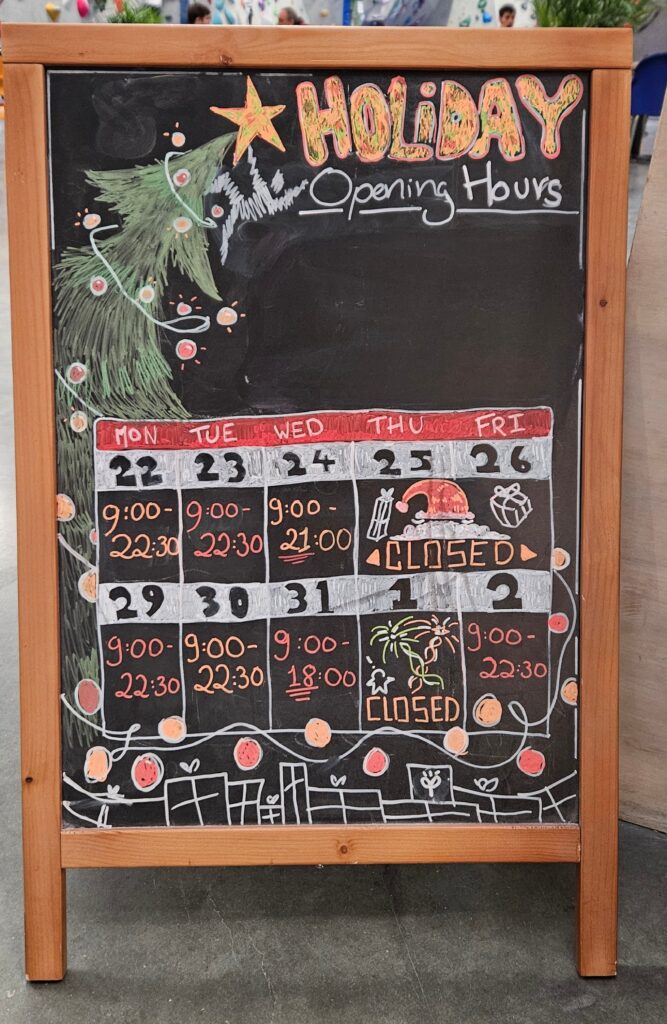 HOLiDAY
Opening Hours
MON TUE WED THU FRI
22 23 24 25 26
9:00- 9:00- 9:00-
22:30 22:30 21:00 CLOSED
29 30 31 1 2
9:00- 9:00- 9:00- 9:00-
22:30 22:30 18:00 CLOSED 22:30